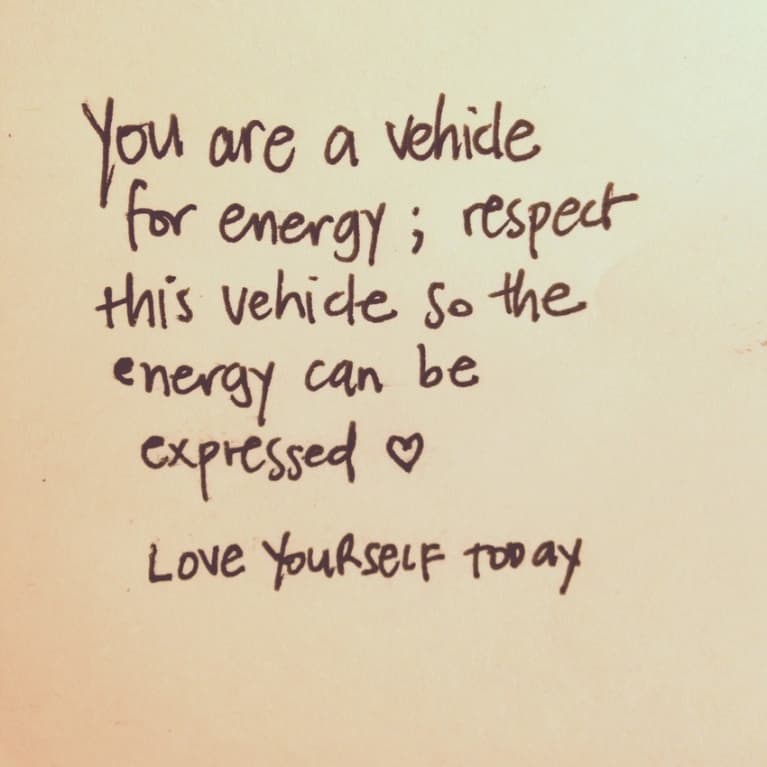 You are a vehicle
for energy; respect
this vehicle so the
energy can be
expressed ♡
LOVE YOURSELF TODAY